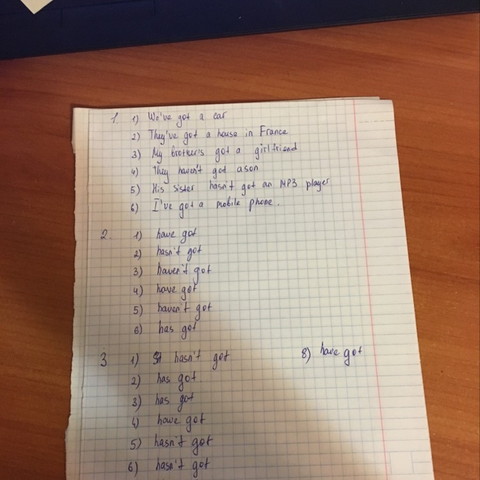 1. 1) We've got a car
2) They've got a house in France
3) My brother's got a girlfriend
4) They haven't got a son
5) His sister hasn't got an MP3 player
6) I've got a mobile phone.
2. 1) have got
2) hasn't got
3) haven't got
4) have got
5) haven't got
6) has got
3 1) hasn't got 8) have got
2) has got
3) has got
4) have got
5) hasn't got
6) hasn't got